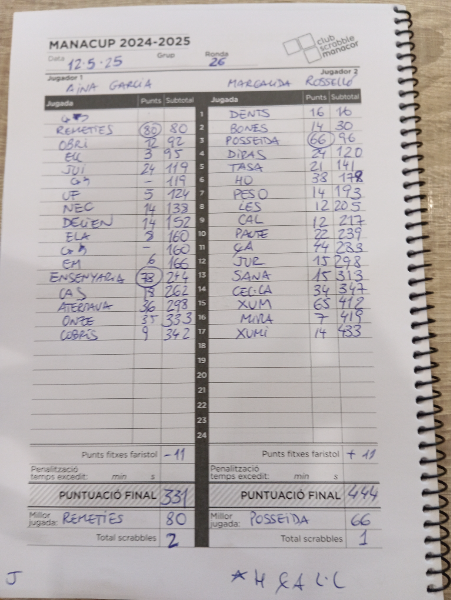 MANACUP 2024-2025
club scrabble manacor
Data 12·5·25 Grup Ronda 26
Jugador 1 AINA GARCIA Jugador 2 MARGALIDA ROSSELLÓ
Jugada Punts Subtotal Jugada Punts Subtotal
1 DENTS 16 16
REMETIES 80 80 2 BONES 14 30
OBRI 12 92 3 POSSEIDA 66 96
ELL 3 95 4 DIRAS 24 120
JUI 24 119 5 TASA 21 141
- 119 6 HO 38 178
UF 5 124 7 PESO 14 193
NEC 14 138 8 LES 12 205
DELIEN 14 152 9 CAL 12 217
ELA 8 160 10 PACTE 22 239
- 160 11 ÇA 44 283
EM 6 166 12 JUR 15 298
ENSENYARIA 78 244 13 SANA 15 313
CAS 18 262 14 CEL·LA 34 347
ATERTAVA 36 298 15 XUM 65 412
ONZE 35 333 16 MIRA 7 419
COBRÍS 9 342 17 XUMI 14 433
18
19
20
21
22
23
24
Punts fitxes faristol -11 Punts fitxes faristol +11
Penalització temps excedit: min s Penalització temps excedit: min s
PUNTUACIÓ FINAL 331 PUNTUACIÓ FINAL 444
Millor jugada: REMETIES 80 Millor jugada: POSSEIDA 66
Total scrabbles 2 Total scrabbles 1
J